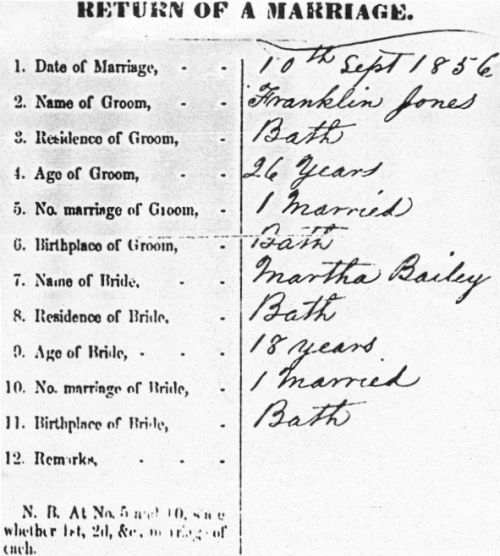 RETURN OF A MARRIAGE.
1. Date of Marriage, - - 10th Sept 1856
2. Name of Groom, - - Franklin Jones
3. Residence of Groom, - Bath
4. Age of Groom, - - 26 Years
5. No. marriage of Groom, - 1 Married
6. Birthplace of Groom, - Bath
7. Name of Bride, - - Martha Bailey
8. Residence of Bride, - Bath
9. Age of Bride, - - - 18 years
10. No. marriage of Bride, - 1 Married
11. Birthplace of Bride, - Bath
12. Remarks, - - -
N. B. At No. 5 and 10, say
whether 1st, 2d, &c, marriage of
each.